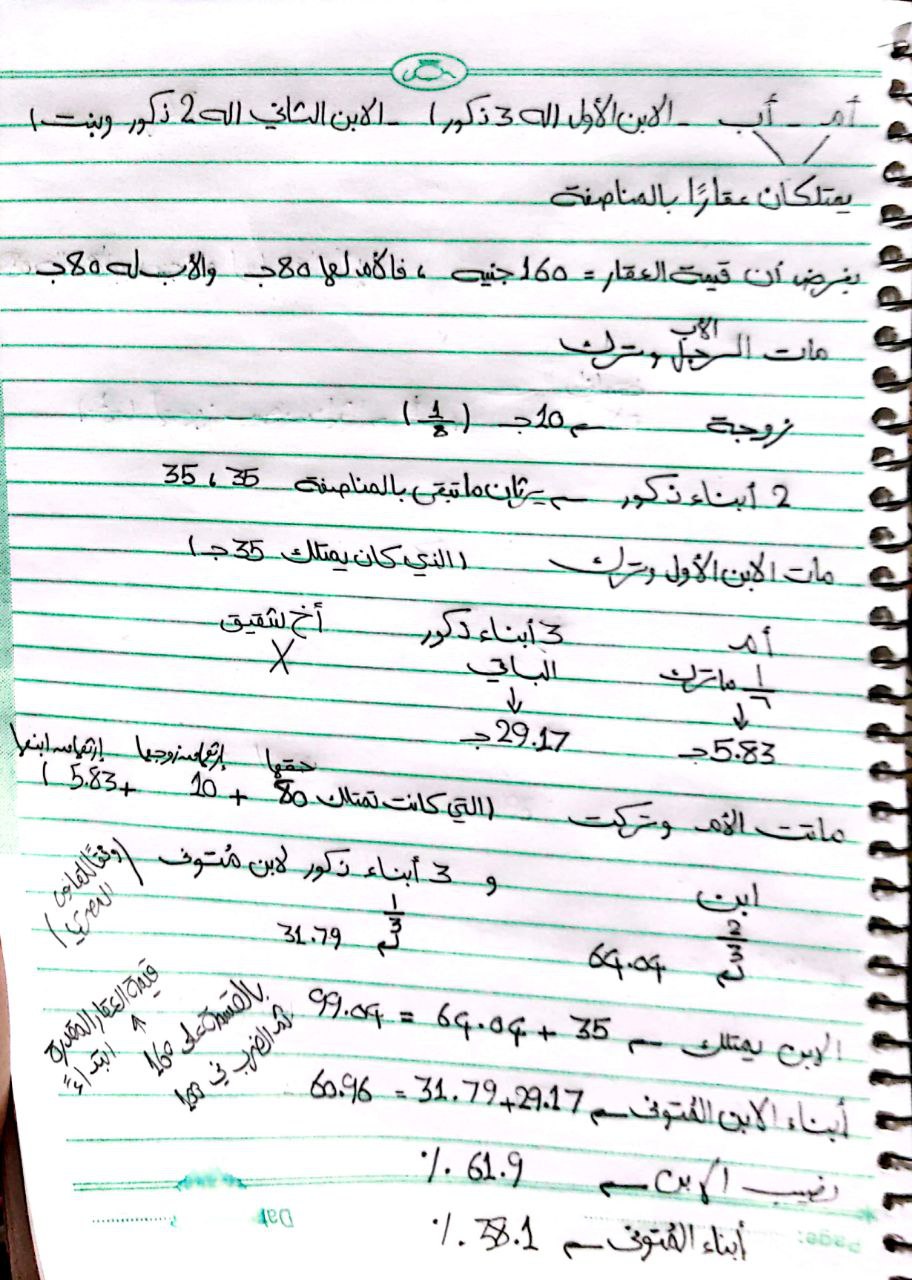 أم - أب - الابن الأول (له 3 ذكور) - الابن الثاني (له 2 ذكور وبنت)
يمتلكان عقارًا بالمناصفة
بفرض أن قيمة العقار = 160 جنيه ، فالأم لها 80ج والأب له 80ج
الأب
مات الرجل وترك
زوجة ← 10ج (1/8)
2 أبناء ذكور ← يرثان ما تبقى بالمناصفة 35 ، 35
مات الابن الأول وترك (الذي كان يمتلك 35ج)
أم 3 أبناء ذكور أخ شقيق
1/6 ما ترك الباقي X
↓ ↓
5.83ج 29.17ج
حقها إرثها من زوجها إرثها من ابنها
ماتت الأم وتركت (التي كانت تمتلك 80 + 10 + 5.83)
ابن و 3 أبناء ذكور لابن مُتوفى (وفقًا للقانون المصري)
2/3 1/3
64.04 31.79
الابن يمتلك ← 35 + 64.04 = 99.04
أبناء الابن المُتوفى ← 29.17+31.79 = 60.96
بالقسمة على 160 ثم الضرب في 100
قيمة العقار المقدرة ابتداءً
نصيب الابن ← 61.9 %
أبناء المُتوفى ← 38.1 %
Page:
Dat